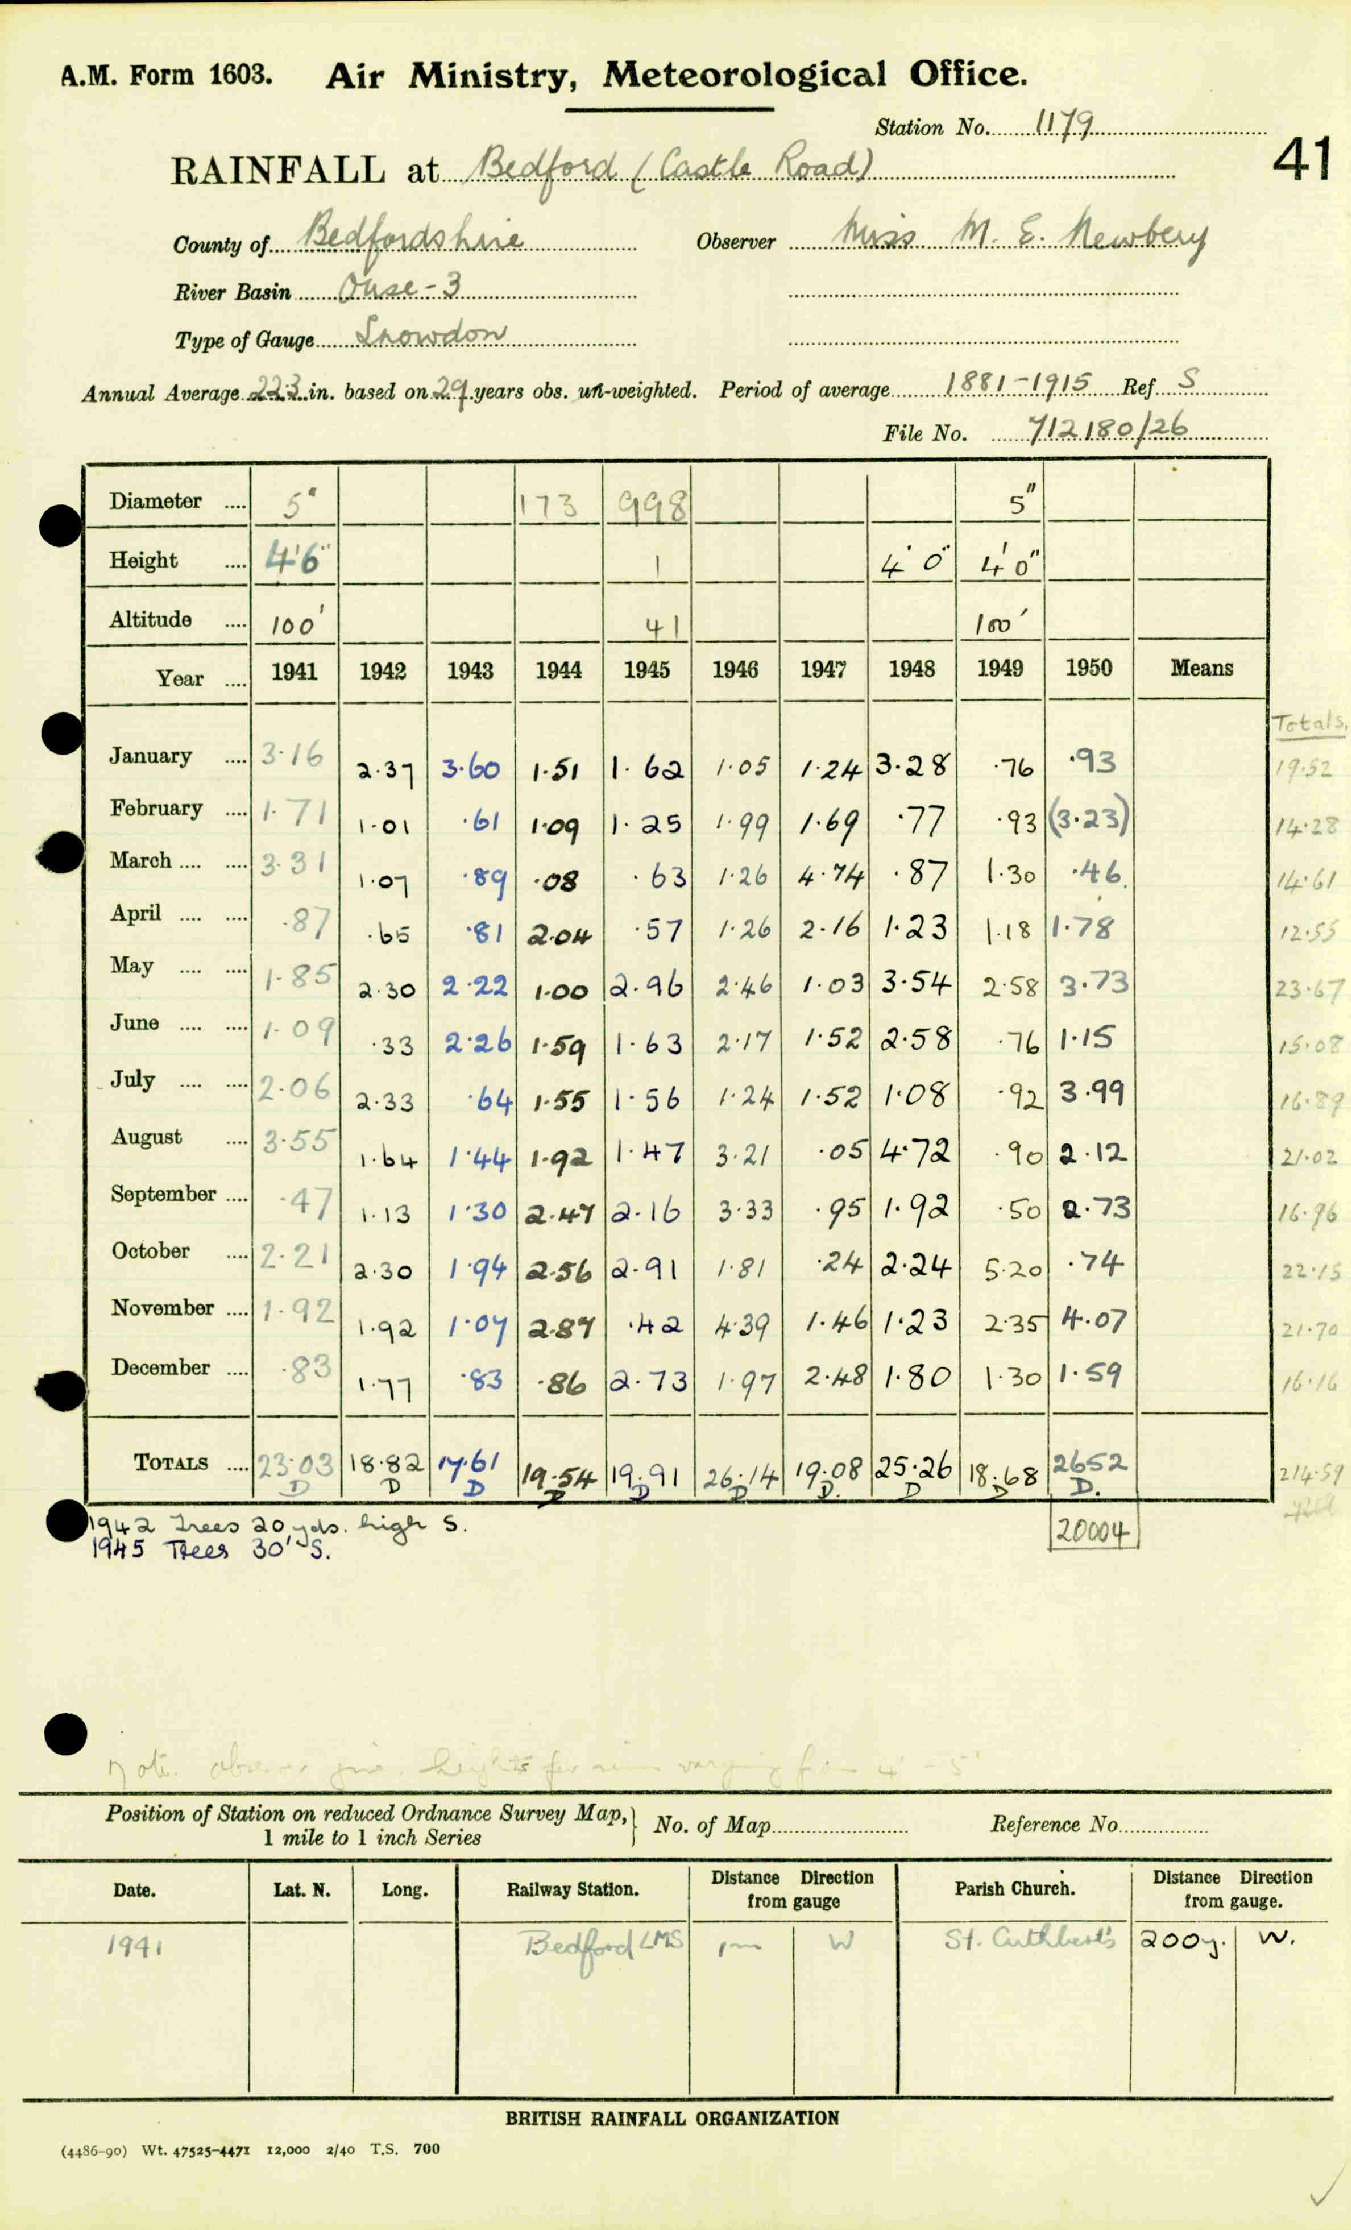 A.M. Form 1603. Air Ministry, Meteorological Office.
Station No. 1179
41
RAINFALL at Bedford (Castle Road)
County of Bedfordshire Observer Miss M. E. Newbery
River Basin Ouse-3
Type of Gauge Snowdon
Annual Average 22.3 in. based on 29 years obs. un-weighted. Period of average 1881-1915 Ref. S
File No. 712180/26
Diameter .... 5" 173 998 5"
Height .... 4'6" 1 4'0" 4'0"
Altitude .... 100' 41 100'
Year .... 1941 1942 1943 1944 1945 1946 1947 1948 1949 1950 Means
Totals.
January .... 3.16 2.37 3.60 1.51 1.62 1.05 1.24 3.28 .76 .93 19.52
February .... 1.71 1.01 .61 1.09 1.25 1.99 1.69 .77 .93 (3.23) 14.28
March .... .... 3.31 1.07 .89 .08 .63 1.26 4.74 .87 1.30 .46 14.61
April .... .... .87 .65 .81 2.04 .57 1.26 2.16 1.23 1.18 1.78 12.55
May .... .... 1.85 2.30 2.22 1.00 2.96 2.46 1.03 3.54 2.58 3.73 23.67
June .... .... 1.09 .33 2.26 1.59 1.63 2.17 1.52 2.58 .76 1.15 15.08
July .... .... 2.06 2.33 .64 1.55 1.56 1.24 1.52 1.08 .92 3.99 16.89
August .... 3.55 1.64 1.44 1.92 1.47 3.21 .05 4.72 .90 2.12 21.02
September .... .47 1.13 1.30 2.47 2.16 3.33 .95 1.92 .50 2.73 16.96
October .... 2.21 2.30 1.94 2.56 2.91 1.81 .24 2.24 5.20 .74 22.15
November .... 1.92 1.92 1.07 2.87 .42 4.39 1.46 1.23 2.35 4.07 21.70
December .... .83 1.77 .83 .86 2.73 1.97 2.48 1.80 1.30 1.59 16.16
TOTALS .... 23.03 18.82 17.61 19.54 19.91 26.14 19.08 25.26 18.68 2652 214.59
D D D D D D D. D D D.
1942 Trees 20 yds. high S.
20004
1945 Trees 30' S.
Note. observer gives heights for rim varying from 4' - 5'
Position of Station on reduced Ordnance Survey Map, 1 mile to 1 inch Series } No. of Map Reference No.
Date. Lat. N. Long. Railway Station. Distance Direction from gauge Parish Church. Distance Direction from gauge.
1941 Bedford LMS 1m W St. Cuthbert's 200y. W.
BRITISH RAINFALL ORGANIZATION
(4486-90) Wt. 47525-4471 12,000 2/40 T.S. 700